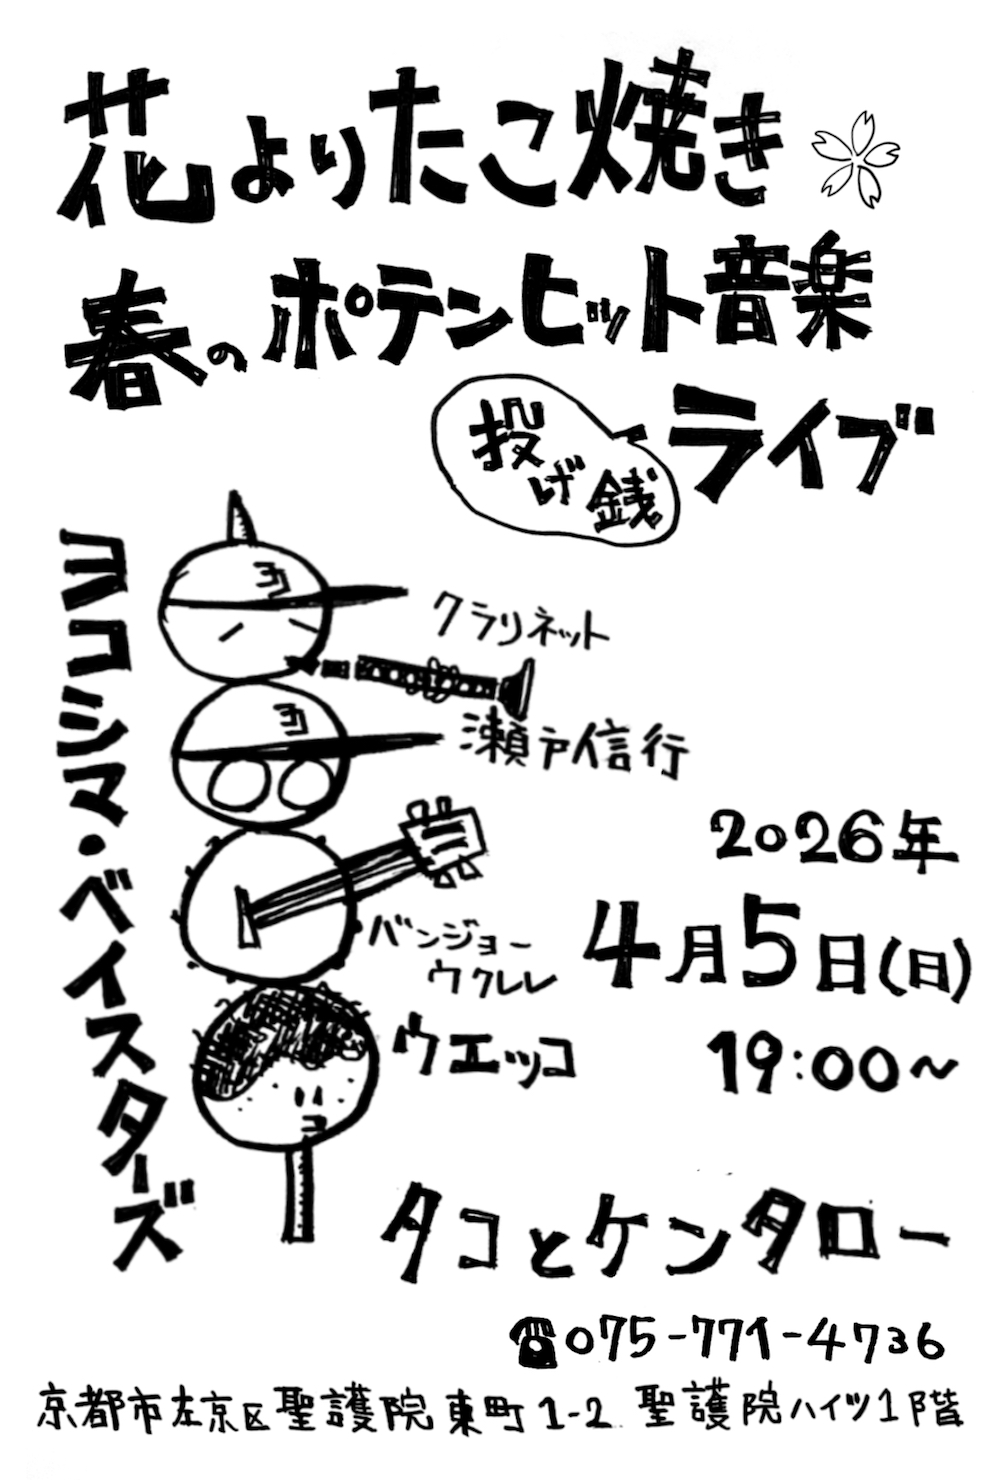 花よりたこ焼き
春のポテンヒット音楽
投げ銭
ライブ
ヨコシマ・ベイスターズ
ヨ
クラリネット
ヨ
瀬戸信行
バンジョー
ウクレレ
ウエッコ
2026年
4月5日(日)
19:00〜
タコとケンタロー
☎075-771-4736
京都市左京区聖護院東町1-2 聖護院ハイツ1階